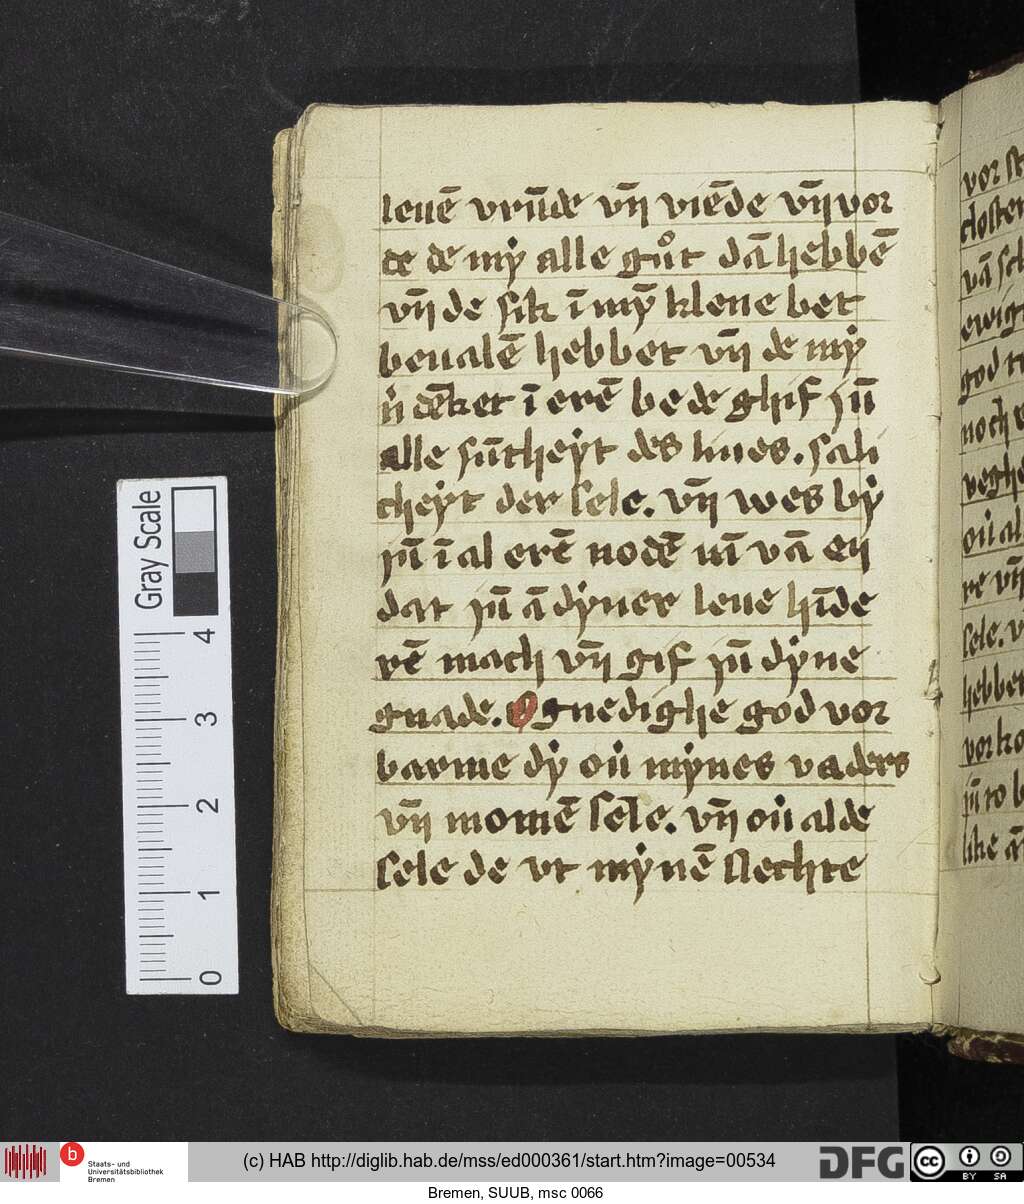 leuē vrūde vn̄ viēde vn̄ vor
ce de my alle gůt dā hebbē
vn̄ de sik ī mȳ klene bet
beualē hebbet vn̄ de mẏ
n̄ dēket ī erē bede ghif ȷū
alle sūtheẏt des liues. sali
cheẏt der sele. vn̄ wes bẏ
ȷū ī al erē nodē vn̄ vā en
dat ȷū ā dẏner leue hīde
rē mach vn̄ gif ȷū dẏne
gnade. O gnedighe god vor
barme dẏ ou̇ mẏnes vaders
vn̄ momē sele. vn̄ ou̇ al de
sele de vt mẏnē slechte
vor
closter
vā
ewig
god
noch
veghe
ou̇ al
re vn̄
sele. v
hebbet
vor
ȷū to
like
Gray Scale
4
3
2
1
0
b
Staats- und
Universitätsbibliothek
Bremen
(c) HAB http://diglib.hab.de/mss/ed000361/start.htm?image=00534
DFG
cc
BY SA
Bremen, SUUB, msc 0066